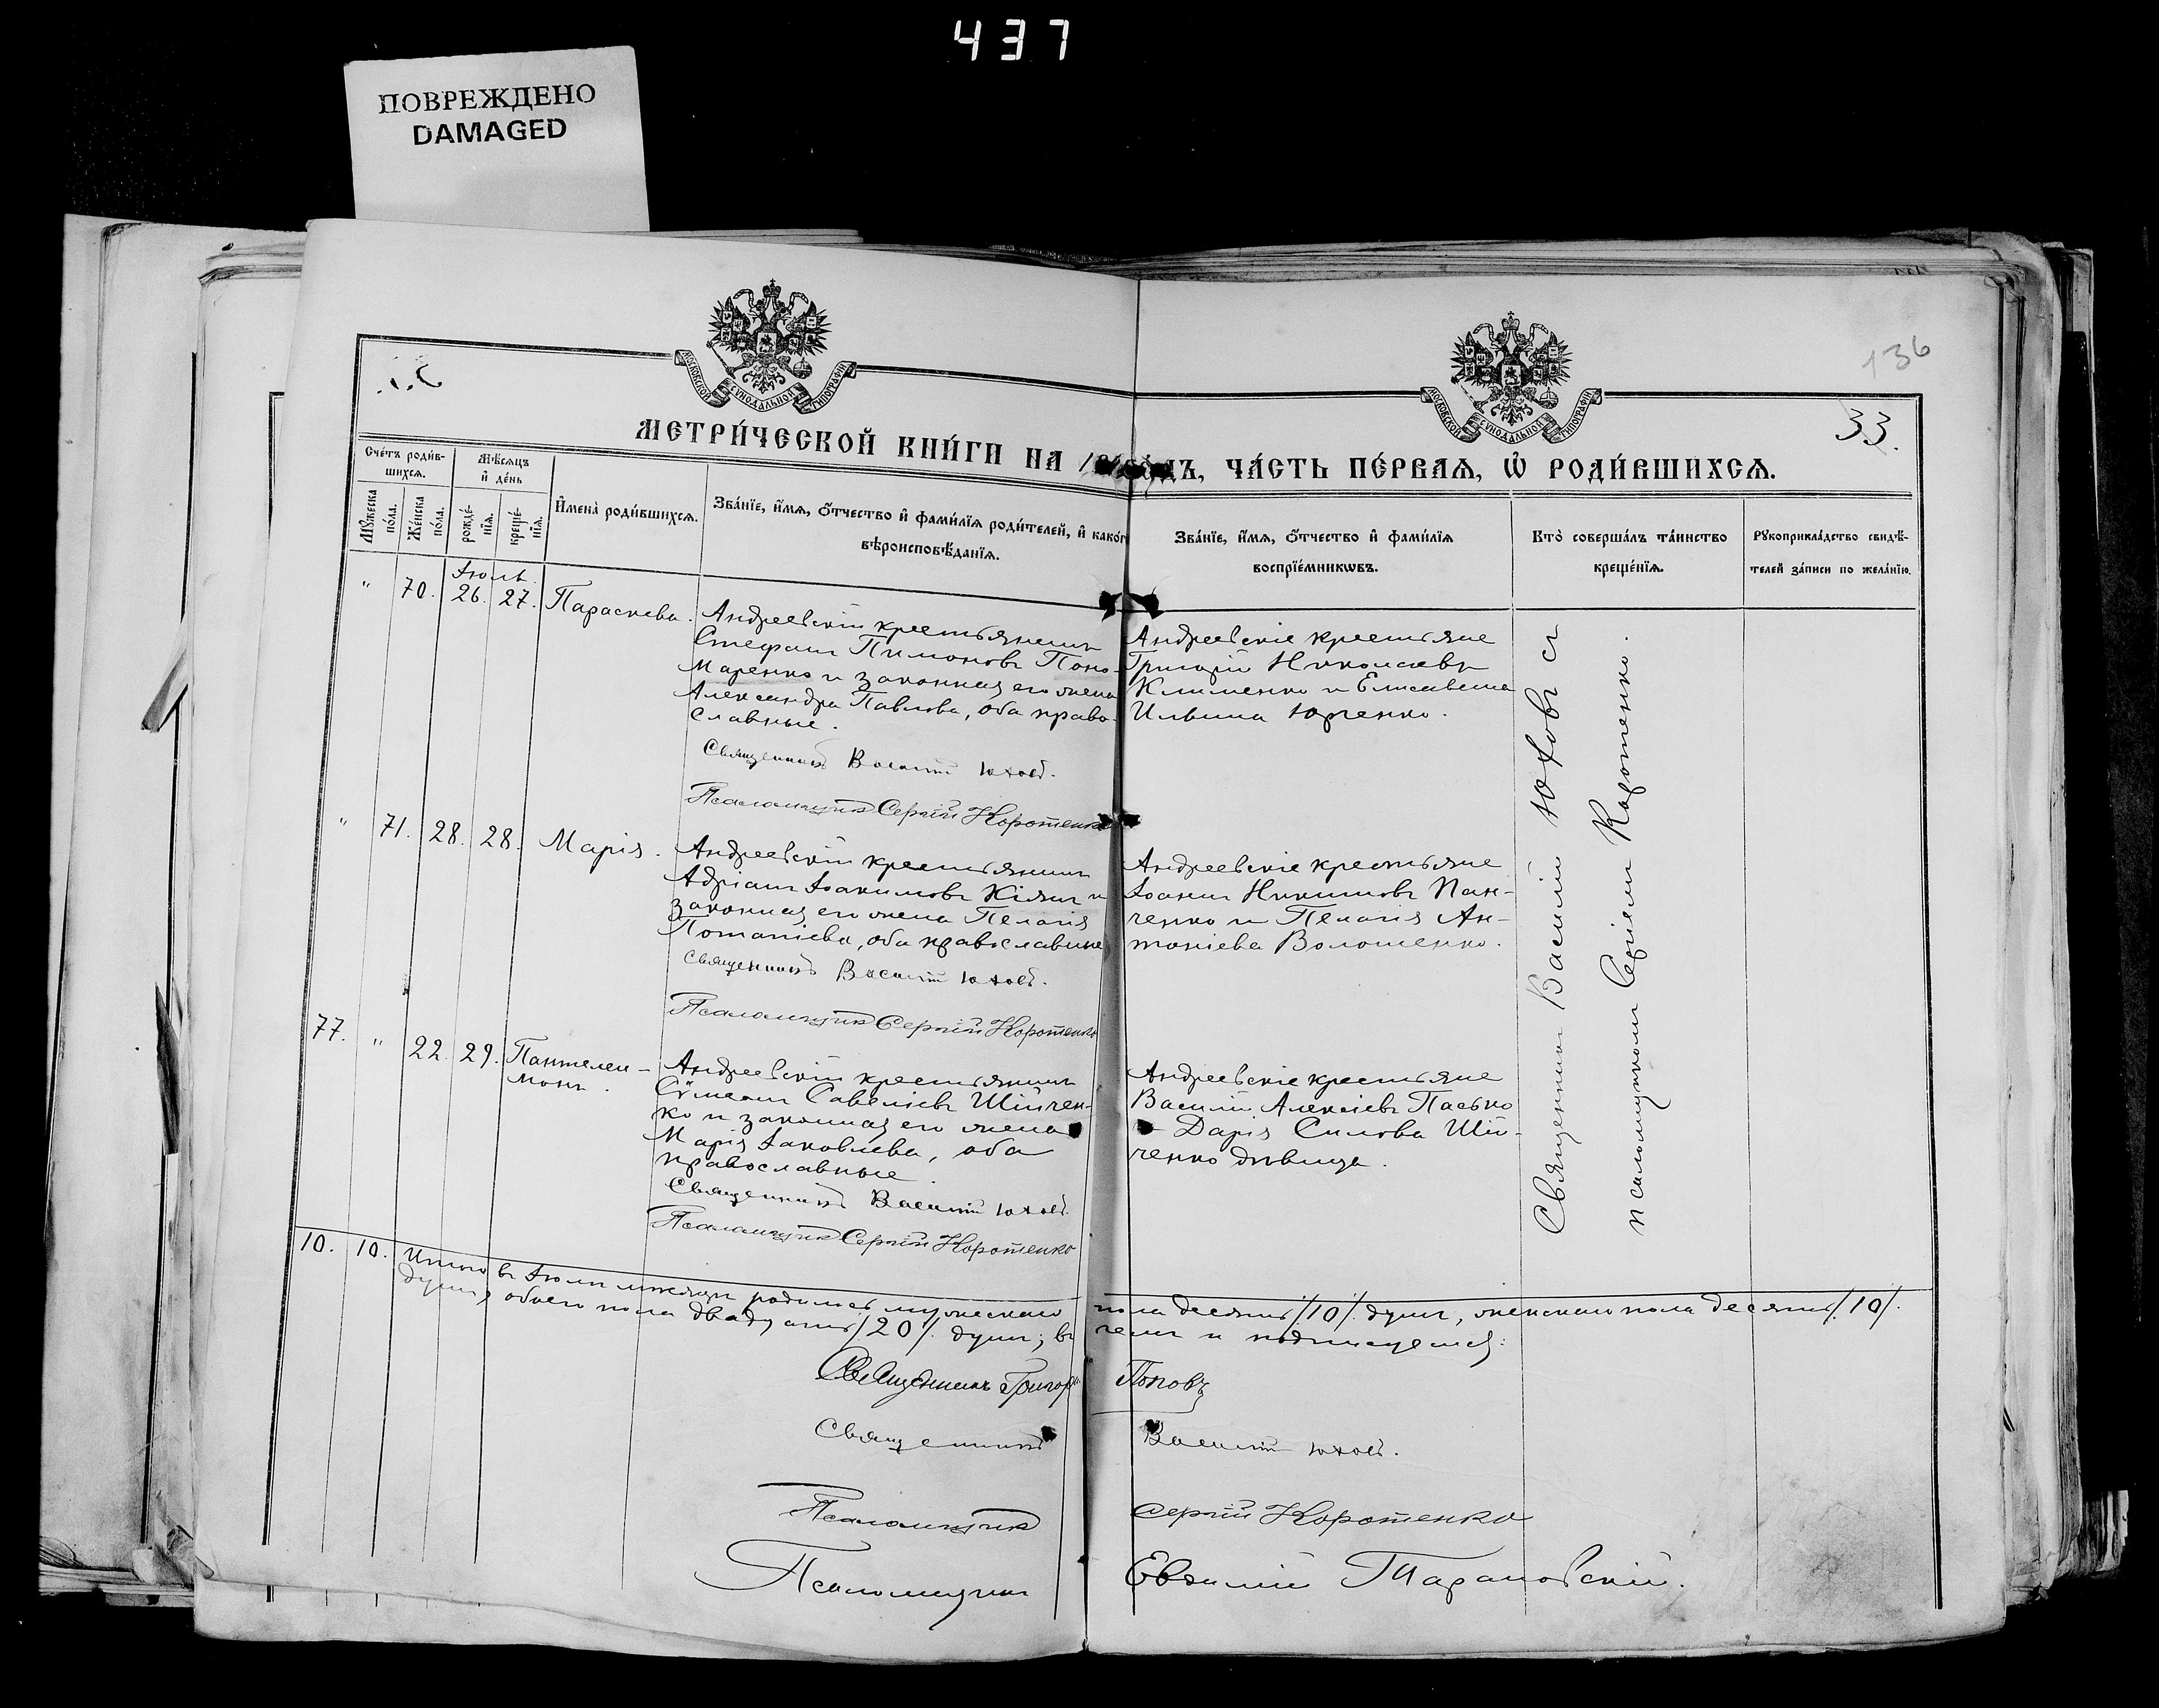 437
ПОВРЕЖДЕНО
DAMAGED
МОСКОВСКОЙ СѴНОДАЛЬНОЙ ТИПОГРАФІИ
МОСКОВСКОЙ СѴНОДАЛЬНОЙ ТИПОГРАФІИ
136
33.
МЕТРИ́ЧЕСКОЙ КНИ́ГИ НА
ЧА́СТЬ ПЕ́РВАѦ, Ѡ҆ РОДИ́ВШИХСѦ.
Сче́тъ роди́в-
шихсѧ.
Мꙋ́жеска
по́ла.
Же́нска
по́ла.
Мѣ́сѧцъ
и҆ де́нь
рожде́-
нїѧ.
креще́-
нїѧ.
И҆мена̀ роди́вшихсѧ.
Зва́нїе, и҆́мѧ, ѻ҆́тчество и҆ фами́лїѧ роди́телей, и҆ како́гѡ
вѣроисповѣ́данїѧ.
Зва́нїе, и҆́мѧ, ѻ҆́тчество и҆ фами́лїѧ
воспрїе́мникѡвъ.
Кто̀ соверша́лъ та́инство
креще́нїѧ.
Рꙋкоприкла́дство свидѣ́-
телей за́писи по жела́нїю.
Іюль.
" 70. 26. 27. Параскева.
Андреевскій крестьянинъ
Стефанъ Пимоновъ Поно-
маренко и законная его жена
Александра Павлова, оба право-
славные.
Священникъ Василій Юховъ.
Псаломщикъ Сергій Коротенко
Андреевскіе крестьяне
Григорій Николаевъ
Клименко и Елисавета
Ильина Юрченко.
" 71. 28. 28. Марія.
Андреевскій крестьянинъ
Адріанъ Іоакимовъ Кіяшъ и
законная его жена Пелагія
Потапіева, оба православные
Священникъ Василій Юховъ.
Псаломщикъ Сергій Коротенко
Андреевскіе крестьяне
Іоаннъ Никитовъ Пан-
ченко и Пелагія Ан-
тоніева Волошенко.
77. " 22. 29. Пантелеи-
монъ.
Андреевскій крестьянинъ
Сѵмеонъ Савеліевъ Шійчен-
ко и законная его жена
Марія Іаковлева, оба
православные.
Священникъ Василій Юховъ.
Псаломщикъ Сергій Коротенко
Андреевскіе крестьяне
Василій Алексіевъ Пасько
Дарія Силова Шій-
ченко дѣвица.
Священникъ Василій Юховъ съ
псаломщикомъ Сергіемъ Коротенко.
10. 10. Итого въ Іюлѣ мѣсяцѣ родилось мужескаго пола десять /10/ душъ, женскаго пола десять /10/.
душъ, обоего пола двадцать /20/ душъ; въ чемъ и подписуемся:
Священникъ Григорій Поповъ
Священникъ Василій Юховъ.
Псаломщикъ Сергій Коротенко
Псаломщикъ Евѳимій Тарановскій.